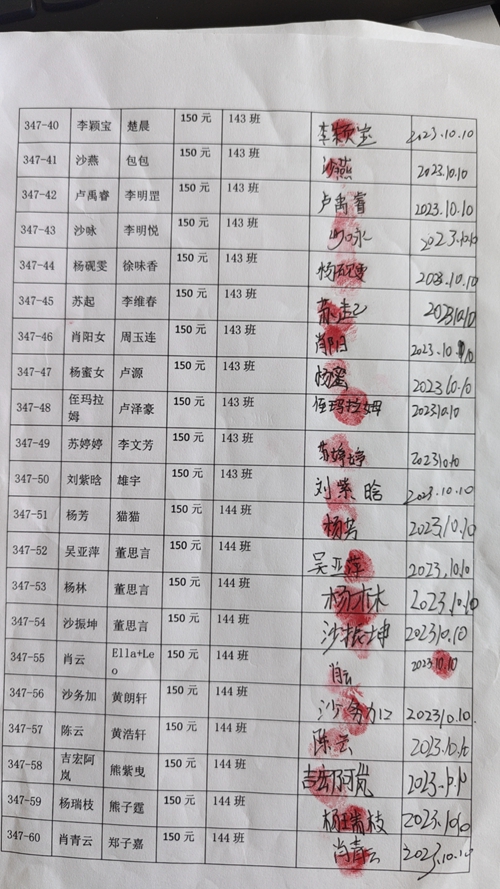 347-40 李颖宝 楚晨 150 元 143 班 李颖宝 2023.10.10
347-41 沙燕 包包 150 元 143 班 沙燕 2023.10.10
347-42 卢禹睿 李明罡 150 元 143 班 卢禹睿 2023.10.10
347-43 沙咏 李明悦 150 元 143 班 沙咏 2023.10.10
347-44 杨砚雯 徐味香 150 元 143 班 杨砚雯 2023.10.10
347-45 苏起 李维春 150 元 143 班 苏起 2023.10.10
347-46 肖阳女 周玉连 150 元 143 班 肖阳 2023.10.10
347-47 杨蜜女 卢源 150 元 143 班 杨蜜 2023.10.10
347-48 侄玛拉 卢泽豪 150 元 143 班 侄玛拉姆 2023.10.10
姆
347-49 苏婷婷 李文芳 150 元 143 班 苏婷婷 2023.10.10
347-50 刘紫晗 雄宇 150 元 143 班 刘紫晗 2023.10.10
347-51 杨芳 猫猫 150 元 144 班 杨芳 2023.10.10
347-52 吴亚萍 董思言 150 元 144 班 吴亚萍 2023.10.10
347-53 杨林 董思言 150 元 144 班 杨林 2023.10.10
347-54 沙振坤 董思言 150 元 144 班 沙振坤 2023.10.10
347-55 肖云 Ella+Le 150 元 144 班 肖云 2023.10.10
o
347-56 沙务加 黄朗轩 150 元 144 班 沙务加 2023.10.10.
347-57 陈云 黄浩轩 150 元 144 班 陈云 2023.10.10
347-58 吉宏阿 熊紫曳 150 元 144 班 吉宏阿岚
岚
347-59 杨瑞枝 熊子霆 150 元 144 班 杨瑞枝 2023.10.10
347-60 肖青云 郑子嘉 150 元 144 班 肖青云 2023.10.10